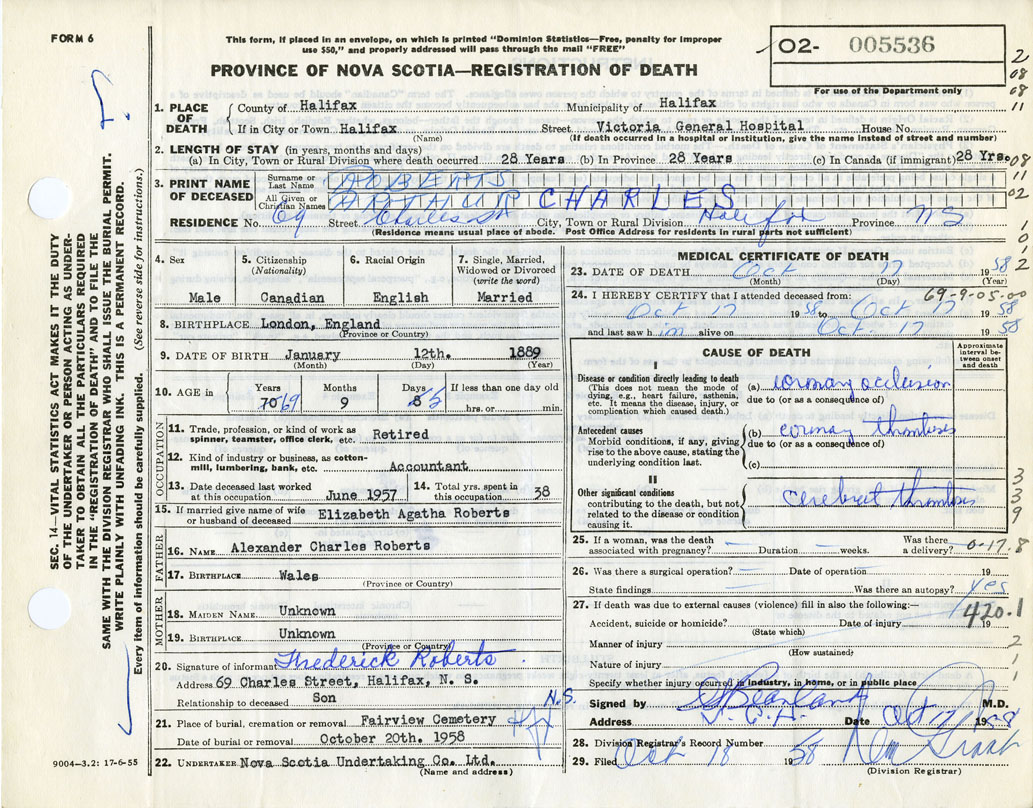 FORM 6
This form, if placed in an envelope, on which is printed "Dominion Statistics—Free, penalty for improper
use $50," and properly addressed will pass through the mail "FREE"
PROVINCE OF NOVA SCOTIA—REGISTRATION OF DEATH
02- 005536
For use of the Department only
2
08
08
11
1. PLACE OF DEATH
County of Halifax Municipality of Halifax
If in City or Town Halifax Street Victoria General Hospital House No.
(Name) (If death occurred in a hospital or institution, give the name instead of street and number)
2. LENGTH OF STAY (in years, months and days)
(a) In City, Town or Rural Division where death occurred 28 Years (b) In Province 28 Years (c) In Canada (if immigrant) 28 Yrs.
08
11
02
1
0
2
3. PRINT NAME OF DECEASED
Surname or Last Name ROBERTS
All Given or Christian Names ARTHUR CHARLES
RESIDENCE No. 69 Street Charles St City, Town or Rural Division Halifax Province NS
(Residence means usual place of abode. Post Office Address for residents in rural parts not sufficient)
4. Sex
Male
5. Citizenship (Nationality)
Canadian
6. Racial Origin
English
7. Single, Married, Widowed or Divorced (write the word)
Married
8. BIRTHPLACE London, England
(Province or Country)
9. DATE OF BIRTH January 12th. 1889
(Month) (Day) (Year)
10. AGE in
Years Months Days If less than one day old
70 69 9 8 5 hrs. or min.
OCCUPATION
11. Trade, profession, or kind of work as spinner, teamster, office clerk, etc. Retired
12. Kind of industry or business, as cotton-mill, lumbering, bank, etc. Accountant
13. Date deceased last worked at this occupation June 1957
14. Total yrs. spent in this occupation 38
15. If married give name of wife or husband of deceased Elizabeth Agatha Roberts
FATHER
16. NAME Alexander Charles Roberts
17. BIRTHPLACE Wales
(Province or Country)
MOTHER
18. MAIDEN NAME Unknown
19. BIRTHPLACE Unknown
(Province or Country)
20. Signature of informant Frederick Roberts
Address 69 Charles Street, Halifax, N. S.
Relationship to deceased Son
21. Place of burial, cremation or removal Fairview Cemetery Hfx N.S.
Date of burial or removal October 20th. 1958
22. UNDERTAKER Nova Scotia Undertaking Co. Ltd.
(Name and address)
MEDICAL CERTIFICATE OF DEATH
23. DATE OF DEATH Oct 17 1958
(Month) (Day) (Year)
69-9-05-00
24. I HEREBY CERTIFY that I attended deceased from:
Oct 17 1958 to Oct 17 1958
and last saw him alive on Oct. 17 1958
CAUSE OF DEATH
Approximate interval between onset and death
I
Disease or condition directly leading to death
(This does not mean the mode of dying, e.g., heart failure, asthenia, etc. It means the disease, injury, or complication which caused death.)
(a) coronary occlusion
due to (or as a consequence of)
Antecedent causes
Morbid conditions, if any, giving rise to the above cause, stating the underlying condition last.
(b) coronary thrombosis
due to (or as a consequence of)
(c)
II
Other significant conditions contributing to the death, but not related to the disease or condition causing it.
cerebral thrombosis
3
3
9
25. If a woman, was the death associated with pregnancy? Duration weeks. Was there a delivery?
0-17.8
26. Was there a surgical operation? Date of operation
State findings Was there an autopsy? yes
27. If death was due to external causes (violence) fill in also the following:—
420.1
Accident, suicide or homicide? Date of injury 19
(State which)
Manner of injury
(How sustained)
2
Nature of injury
1
Specify whether injury occurred in industry, in home, or in public place
Signed by M.D.
Address V.G.H. Date Oct 17 1958
28. Division Registrar's Record Number
29. Filed Oct 18 1958
(Division Registrar)
SEC. 14—VITAL STATISTICS ACT MAKES IT THE DUTY
OF THE UNDERTAKER OR PERSON ACTING AS UNDER-
TAKER TO OBTAIN ALL THE PARTICULARS REQUIRED
IN THE "REGISTRATION OF DEATH" AND TO FILE THE
SAME WITH THE DIVISION REGISTRAR WHO SHALL ISSUE THE BURIAL PERMIT.
WRITE PLAINLY WITH UNFADING INK. THIS IS A PERMANENT RECORD.
Every item of information should be carefully supplied. (See reverse side for instructions.)
9004—3.2: 17-6-55